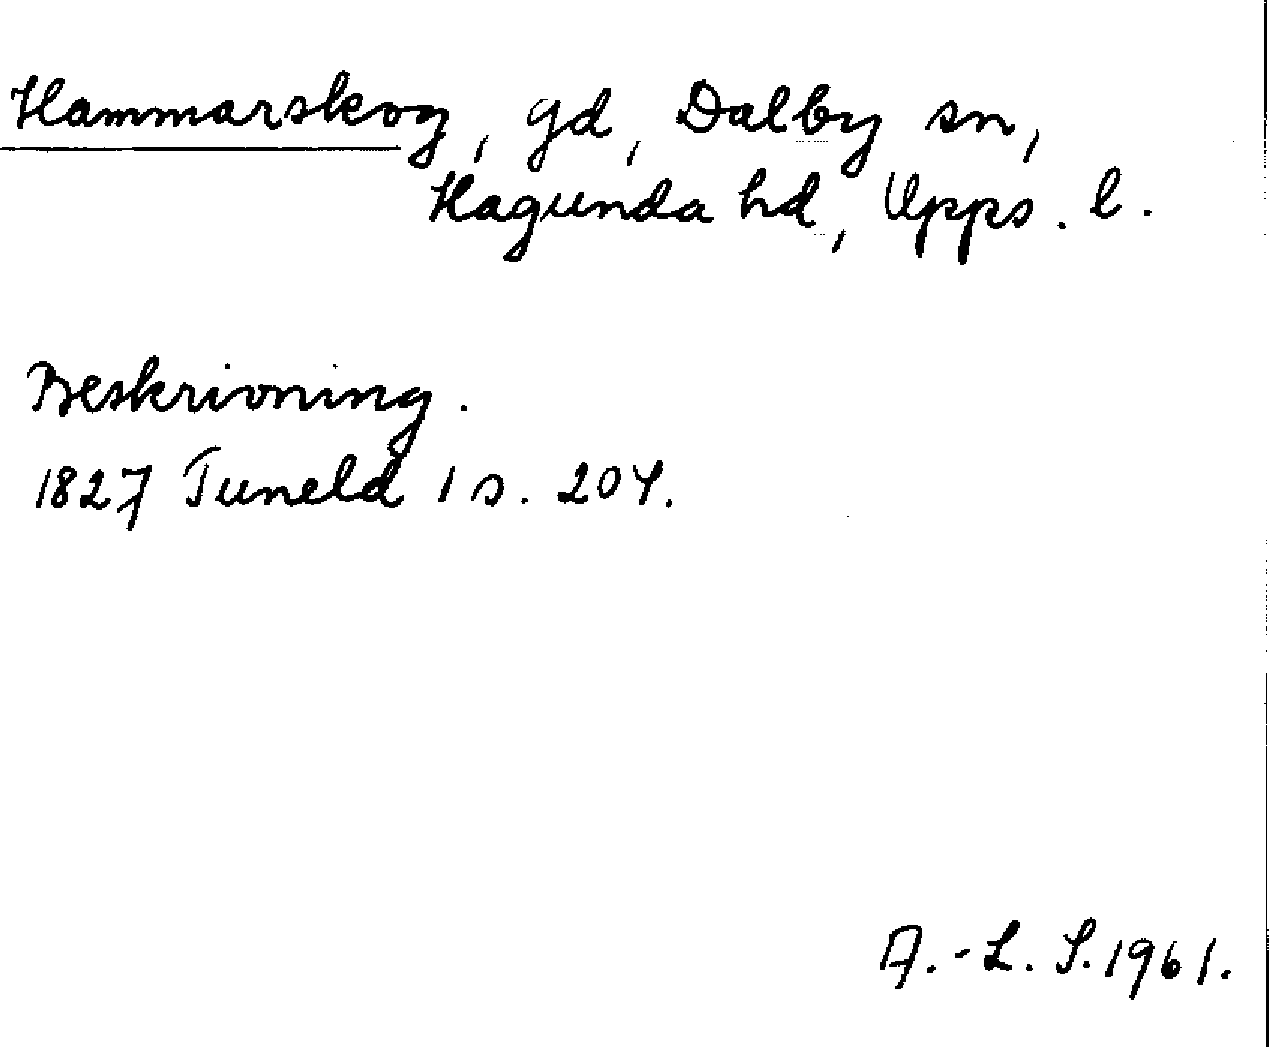 Hammarskog, gd, Dalby sn,
Hagunda hd, Upps. l.
Beskrivning.
1827 Tuneld 1 s. 204.
A.-L. S. 1961.